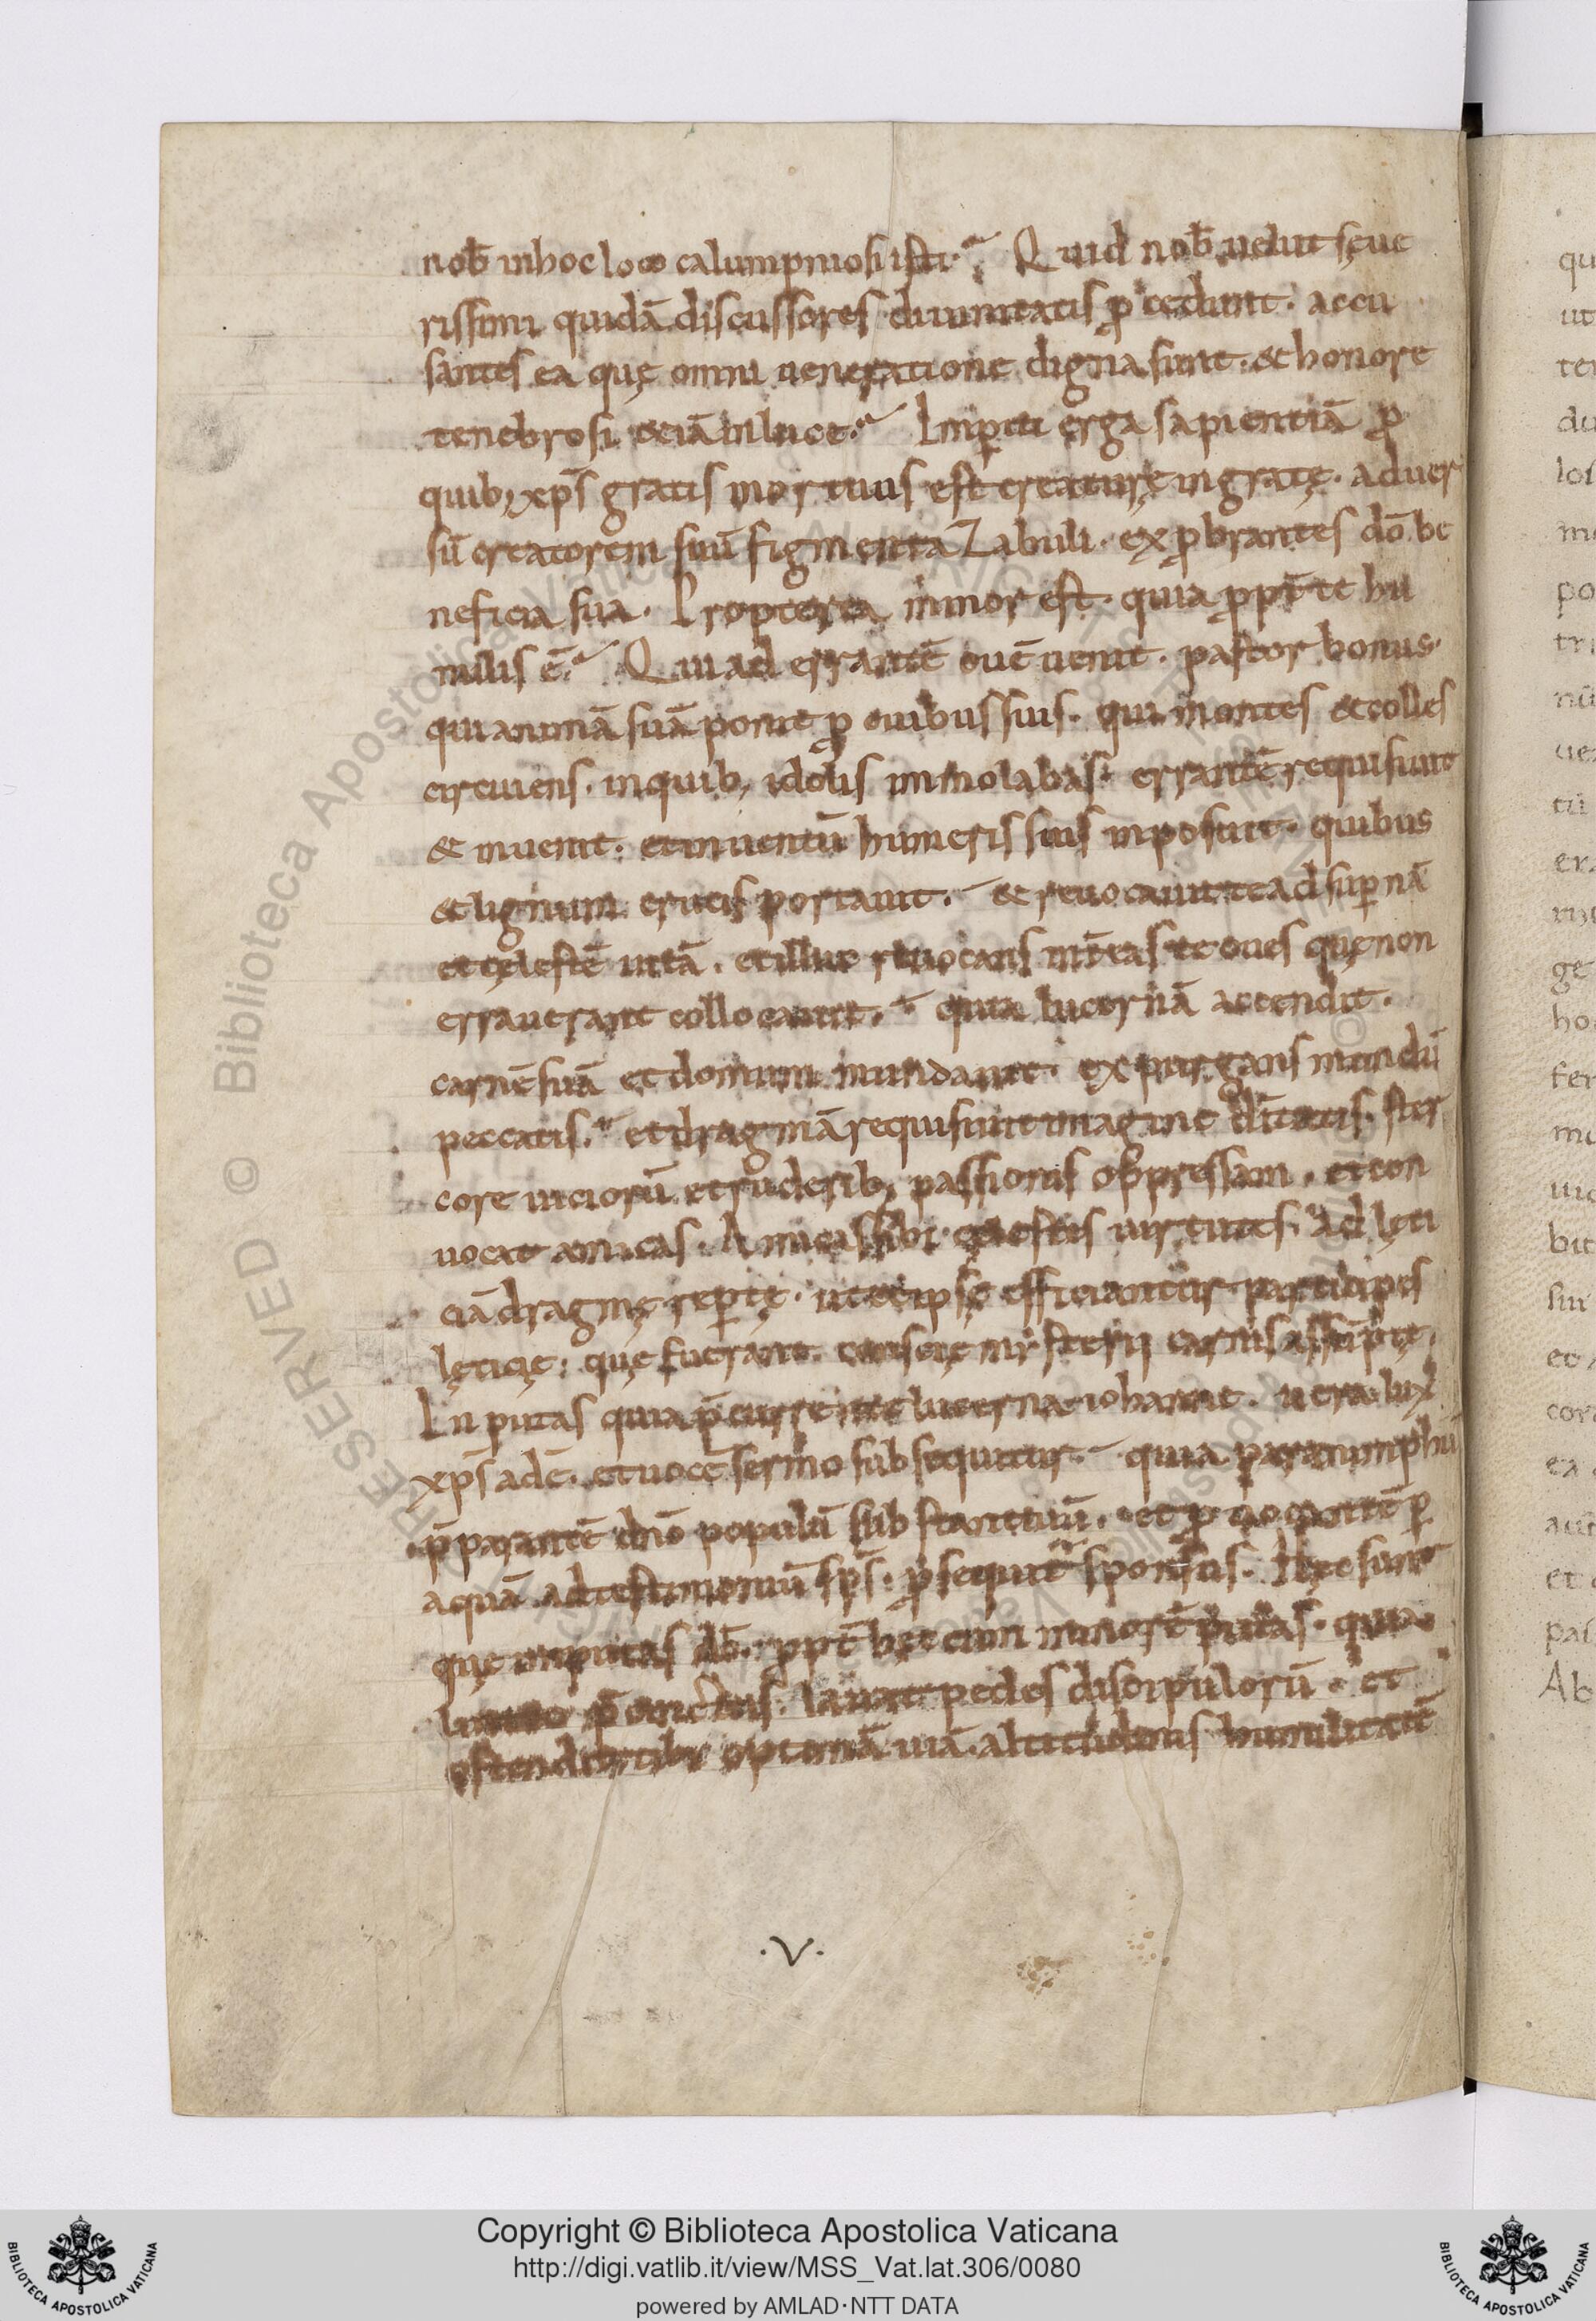 nob̄ inhoc loco calumpniosi isti. Quid nob̄ uelut sęue
rissimi quidā discussores diuinitatis ꝓcedunt. accu
santes ea quę omni ueneratione digna sunt. & honore
tenebrosi &iā in luce. Imperiti erga sapientiā ꝓ
quib; xp̄s gratis mortuus est creaturę ingratę. aduer
sū creatorem suū figmenta Zabuli. exꝓbrantes dō be
neficia sua. Propterea minor est. quia ꝓpt̄ te hu
milis ē. Qui ad errantē ouē uenit. pastor bonus.
qui animā suā ponit ꝓ ouibus suis. qui montes & colles
circuiens. in quib; idolis immolabas. errantē requisiuit
& inuenit. et inuentū humeris suis inposuit. quibus
& lignum crucis portauit. & reuocauit te ad suꝑnā
et cęlestē uitā. et illuc reuocans int̄ eas te oues quę non
errauerant collocauit. quia lucernā accendit.
carnē suā et domum mundauit. expurgans mundū
peccatis. et dragmā requisiuit imaginē dītatis. ster
core uiciorū et ruderib; passionis oppressam. et con
uocat amicas. Amicas sibi cęlestis uirtutes. ad lęti
ciā dragmę reꝑtę. ut et ipsę efficiantur participes
lęticię. quę fuerant conscię misterii carnis assūptę.
In putas quia p̄currente lucerna iohanne. uera lux
xp̄s adē. et uocē sermo subsequitur. quia paranimphū
p̄parantē dn̄o populū substantiuū. et ꝓuocantē ꝓ
aquā ad testimoniū sp̄s. ꝓsequit̄ sponsus. Hęc sunt
quę inputas dō. ꝓpt̄ hęc eum minorē putas. quia
linteo p̄cinctus. lauat pedes discipulorū. et
ostendit tibi optimā uiā. altitudinis humilitatē
.V.
qu
ut
ter
du
los
po
tri
nū
tū
ge
ho
fer
bit
et
cor
ex
et
pas
Ab
RESERVED © Biblioteca Apostolica Vaticana
Copyright © Biblioteca Apostolica Vaticana
http://digi.vatlib.it/view/MSS_Vat.lat.306/0080
powered by AMLAD·NTT DATA
BIBLIOTECA APOSTOLICA VATICANA
BIBLIOTECA APOSTOLICA VATICANA